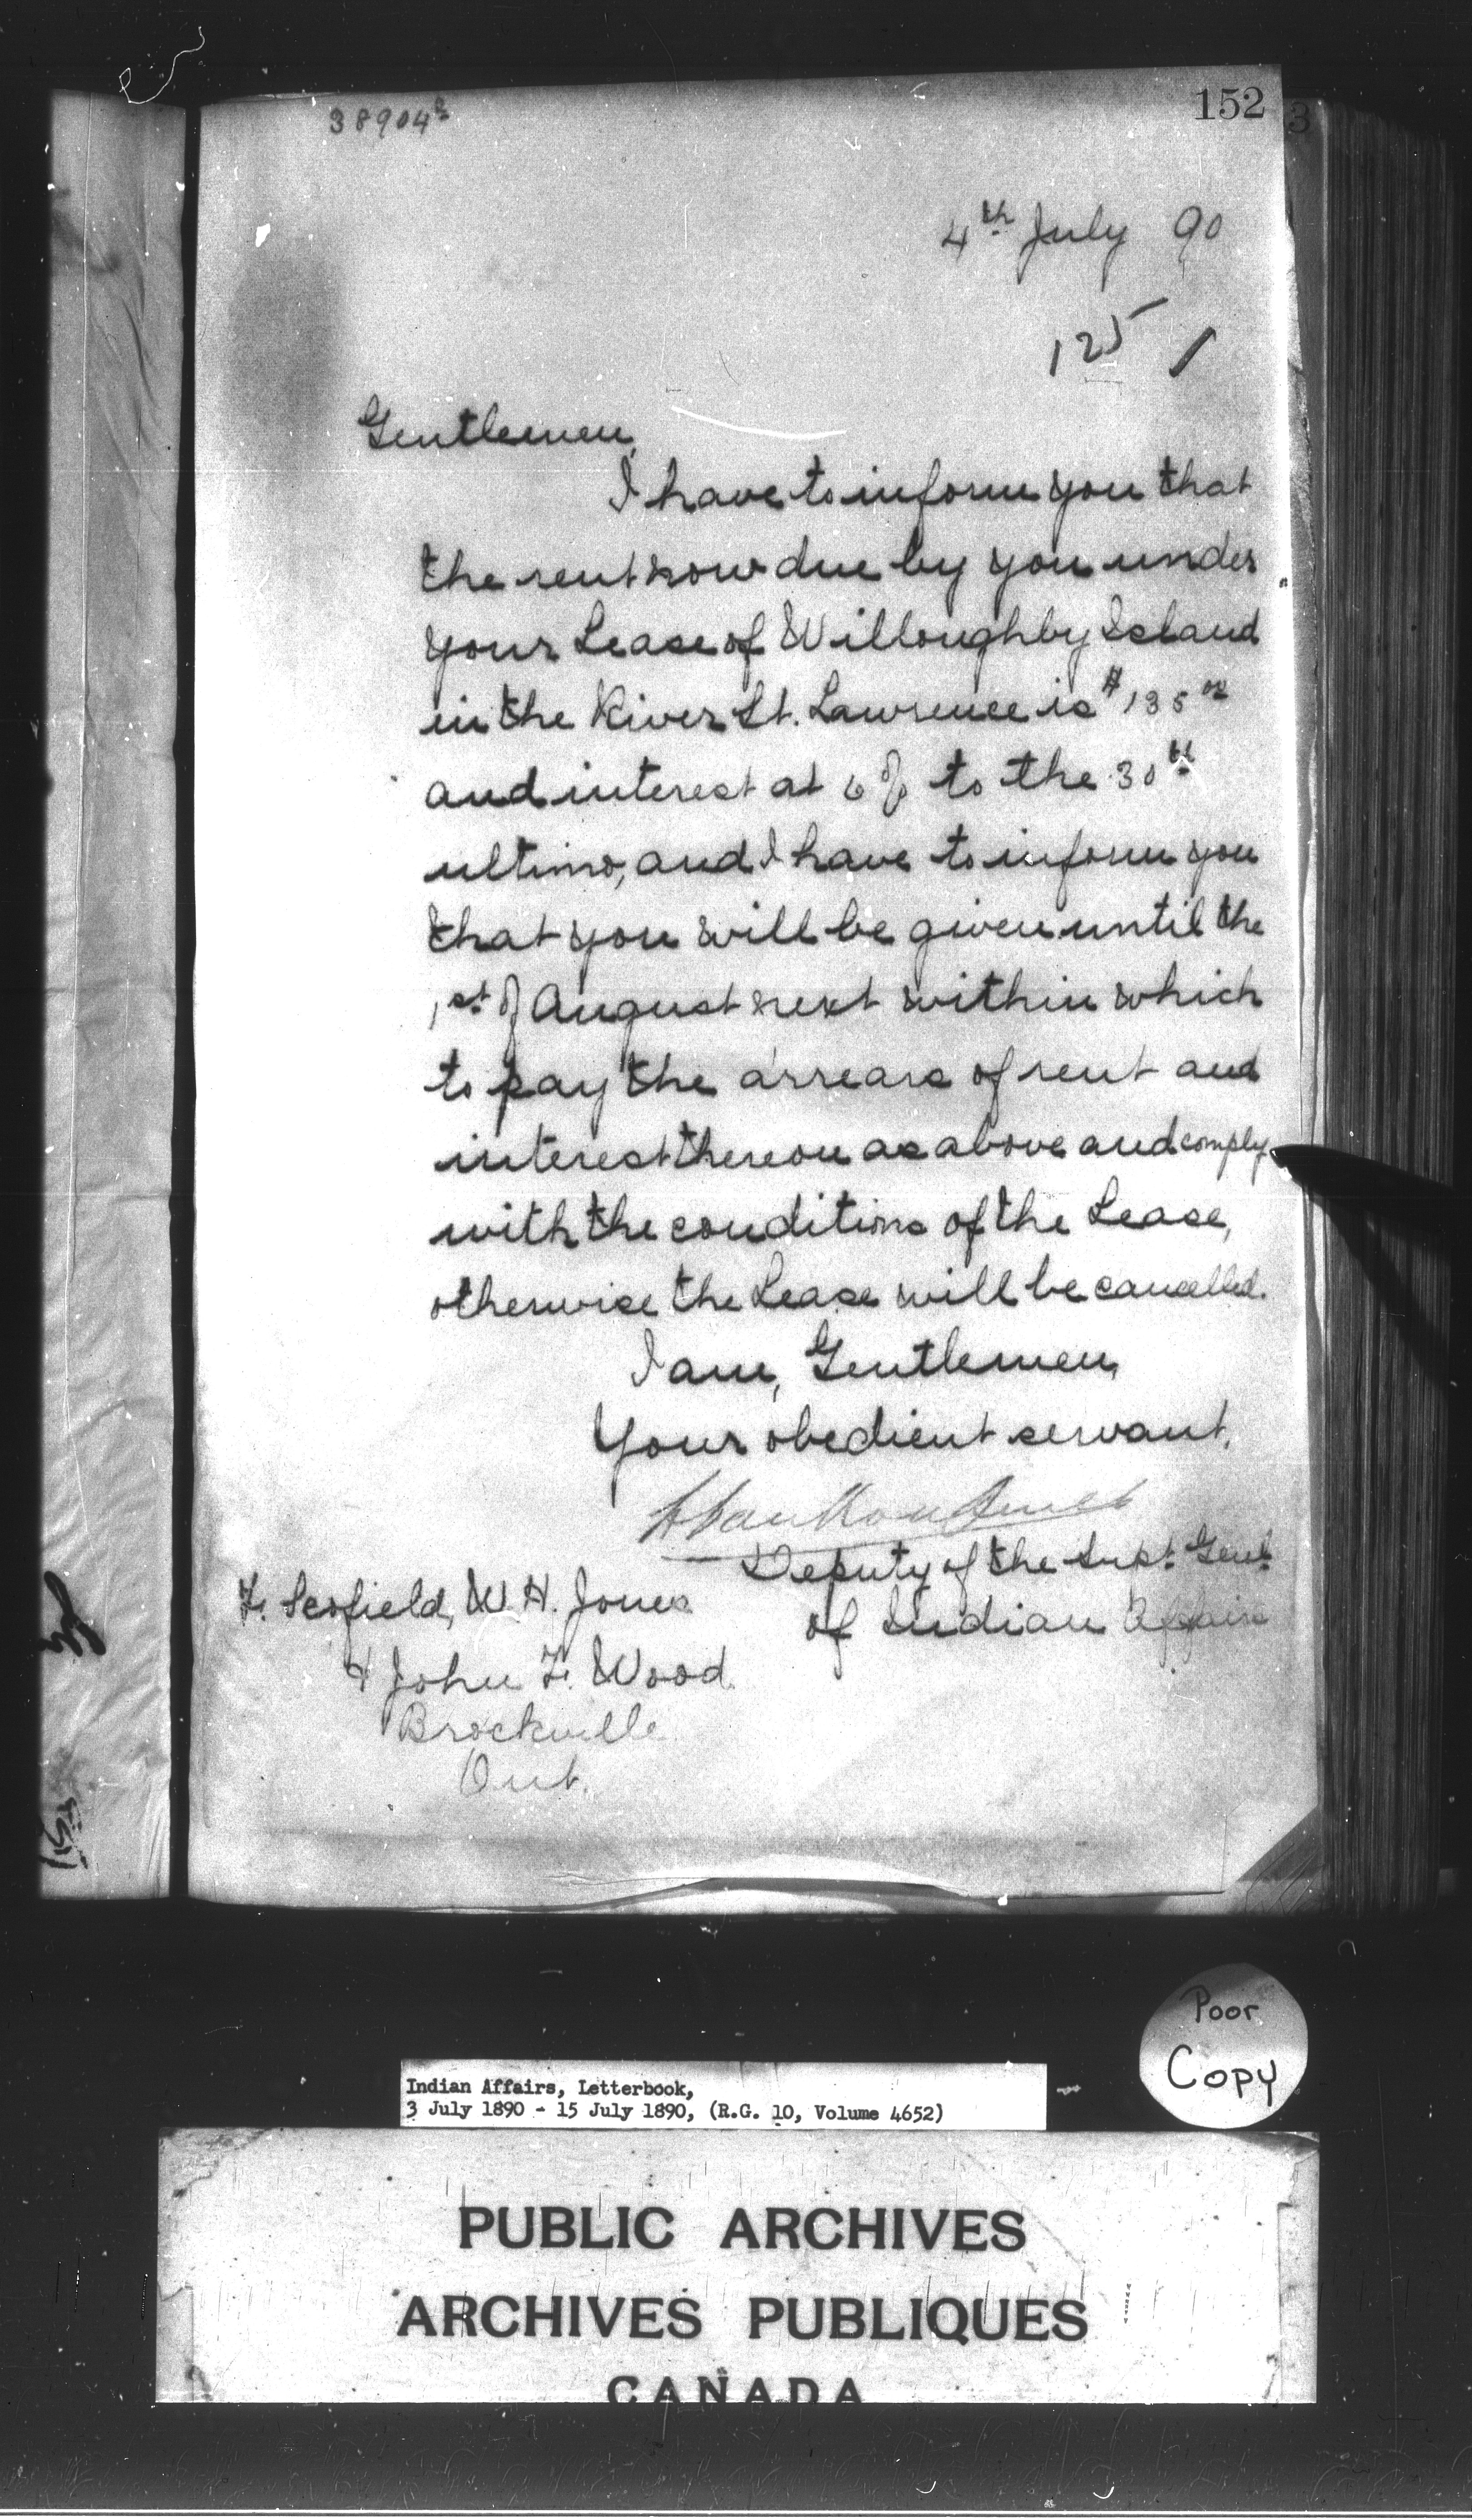 152
38904²
4th July 90
125 /
Gentlemen,
I have to inform you that
the rent now due by you under
your Lease of Willoughby Island
in the River St. Lawrence is $135.00
and interest at 6% to the 30th
ultimo, and I have to inform you
that you will be given until the
1st of August next within which
to pay the arrears of rent and
interest thereon as above and comply
with the conditions of the Lease,
otherwise the Lease will be cancelled.
I am, Gentlemen,
Your obedient servant,
L. VanKoughnet
Deputy of the Supt. Genl.
of Indian Affairs
F. Scofield, W. H. Jones
& John F. Wood
Brockville
Ont.
Poor
Copy
Indian Affairs, Letterbook,
3 July 1890 - 15 July 1890, (R.G. 10, Volume 4652)
PUBLIC ARCHIVES
ARCHIVES PUBLIQUES
CANADA